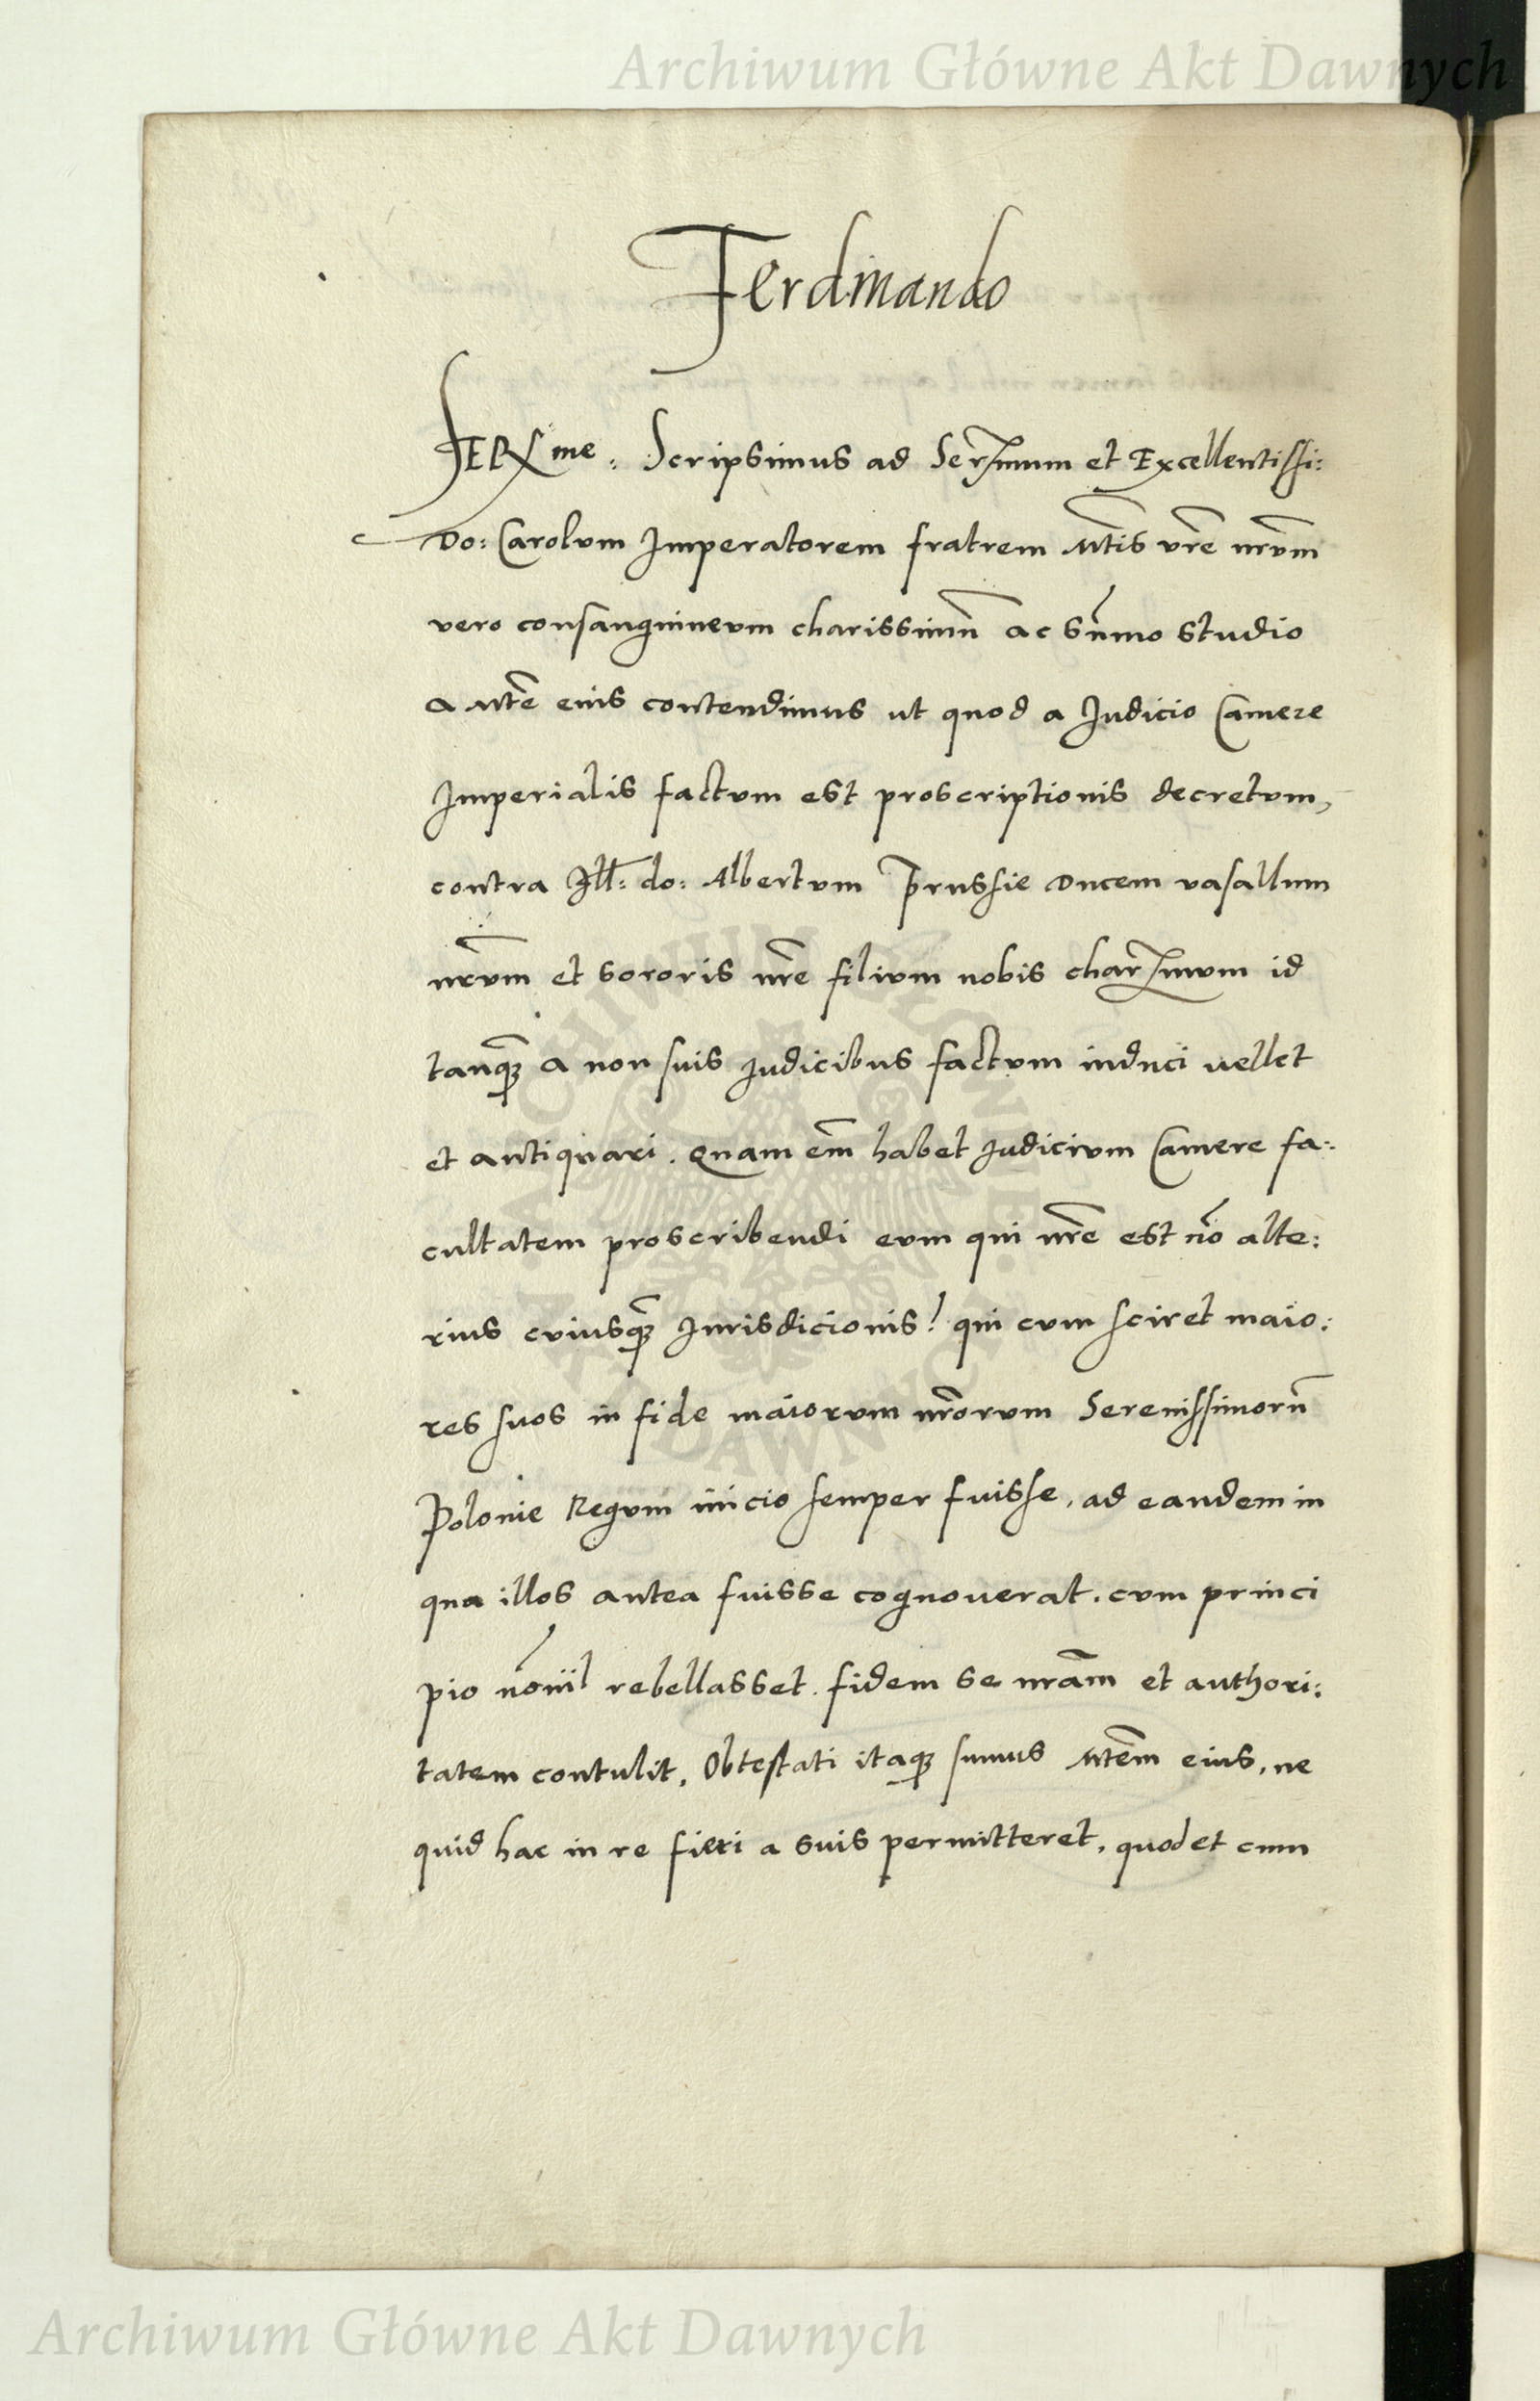 Archiwum Główne Akt Dawnych
Ferdinando
SERme. Scripsimus ad Sermum et Excellentissi:
Do: Carolum Imperatorem fratrem Mtis vre nrum
vero consanguineum charissimũ ac sũmo studio
a Mte eius contendimus ut quod a Judicio Camere
Imperialis factum est proscriptionis decretum,
contra Ill: do: Albertum Prussie Ducem vasallum
nrum et sororis nre filium nobis charmum id
tanq̃ a non suis Judicibus factum induci vellet
et antiquari. Quam em̃ habet Judicium Camere fa:
cultatem proscribendi eum qui nre est nõ alte:
rius cuiusq̃ Jurisdicionis? qui cum sciret maio:
res suos in fide maiorum nrorum Serenissimorũ
Polonie Regum inicio semper fuisse, ad eandem in
qua illos antea fuisse cognouerat. cum princi
pio nõniil rebellasset. fidem se nram et authori:
tatem contulit. Obtestati itaq; sumus Mtem eius, ne
quid hac in re fieri a suis permitteret, quod et cum
ARCHIWUM GŁÓWNE AKT DAWNYCH
Archiwum Główne Akt Dawnych